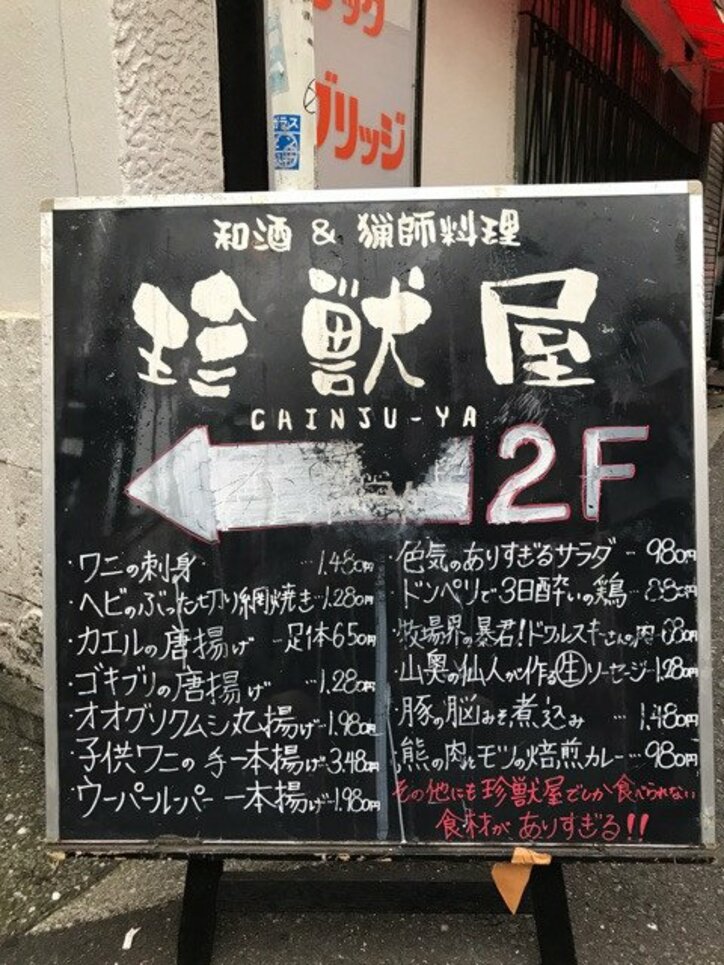 ック
ブリッジ
和酒 & 猟師料理
珍獣屋
CHINJU-YA
2F
・ワニの刺身 …1,480円
・ヘビのぶった切り網焼き…1,280円
・カエルの唐揚げ 一足体650円
・ゴキブリの唐揚げ …1,280円
・オオグソクムシ丸揚げ…1,980円
・子供ワニの手一本揚げ…3,480円
・ウーパールーパー 一本揚げ…1,980円
・色気のありすぎるサラダ…980円
・ドンペリで3日酔いの鶏…880円
・牧場界の暴君!ドワルスキーさんの肉…680円
・山奥の仙人が作る生ソーセージ…1,280円
・豚の脳みそ煮込み …1,480円
・熊の肉とモツの焙煎カレー…980円
その他にも珍獣屋でしか食べられない
食材がありすぎる!!